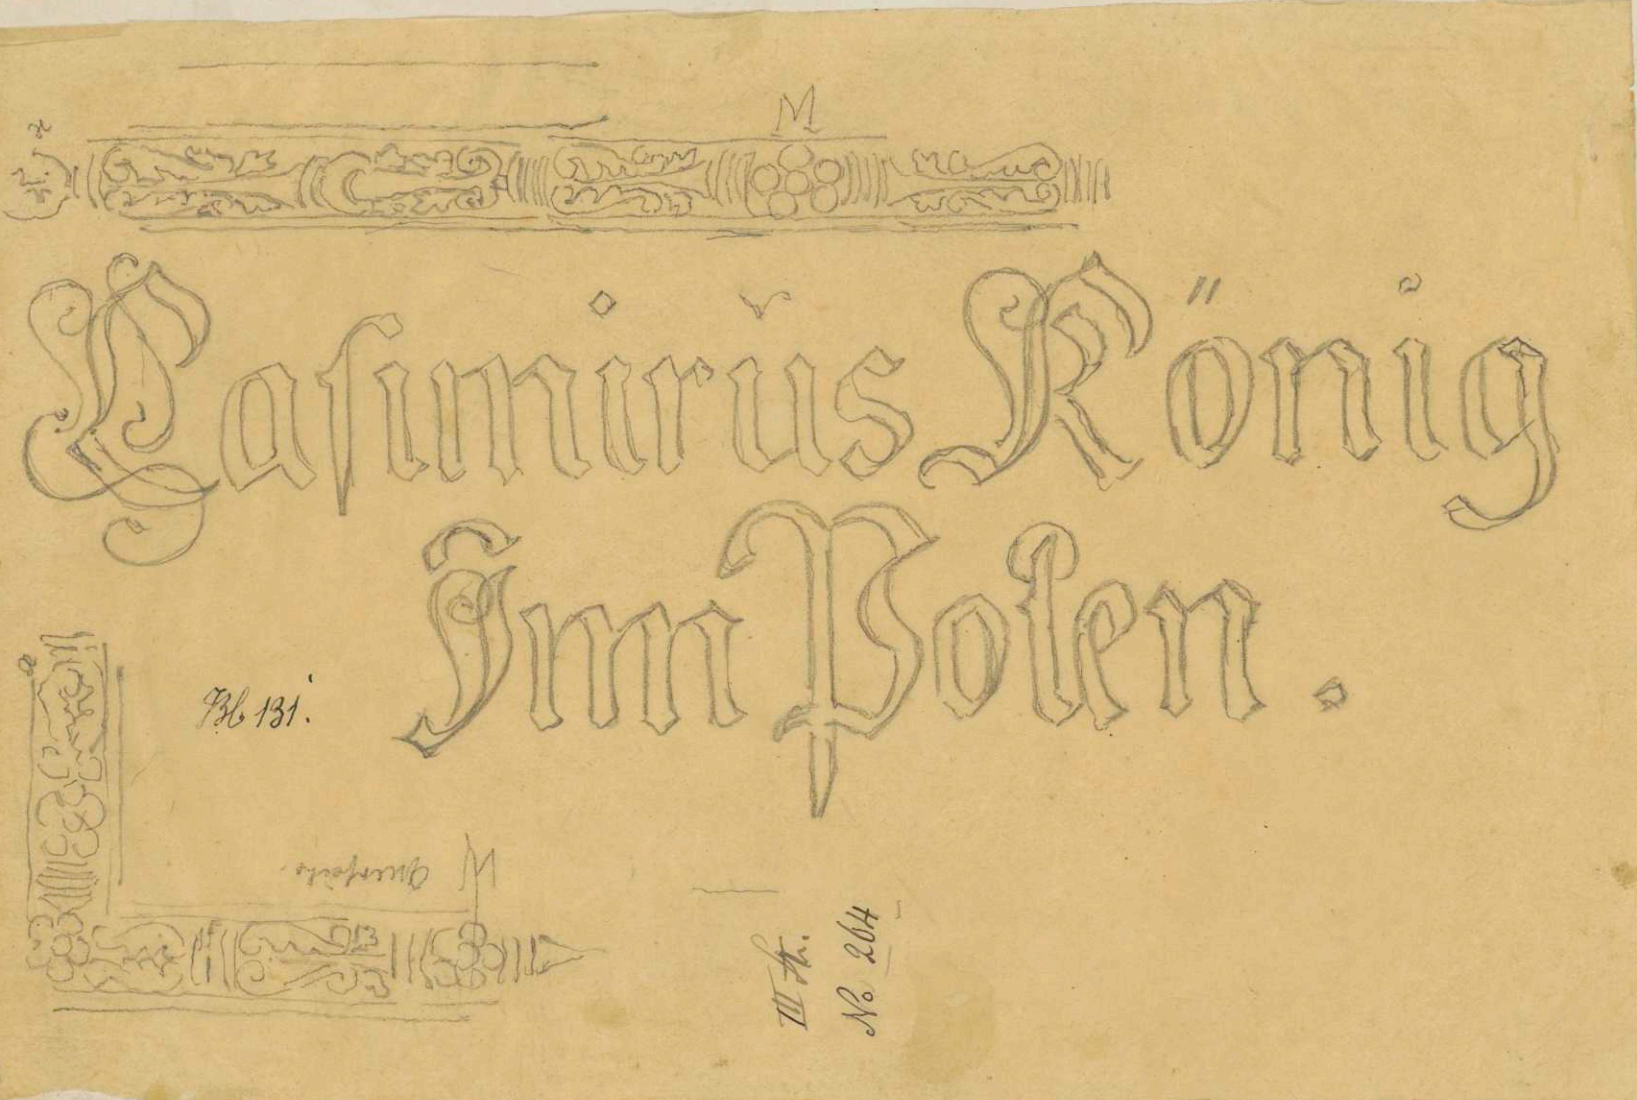 M
Casimirus König
Inn Polen.
Bl 131.
M
Querseite
III Str.
No 264